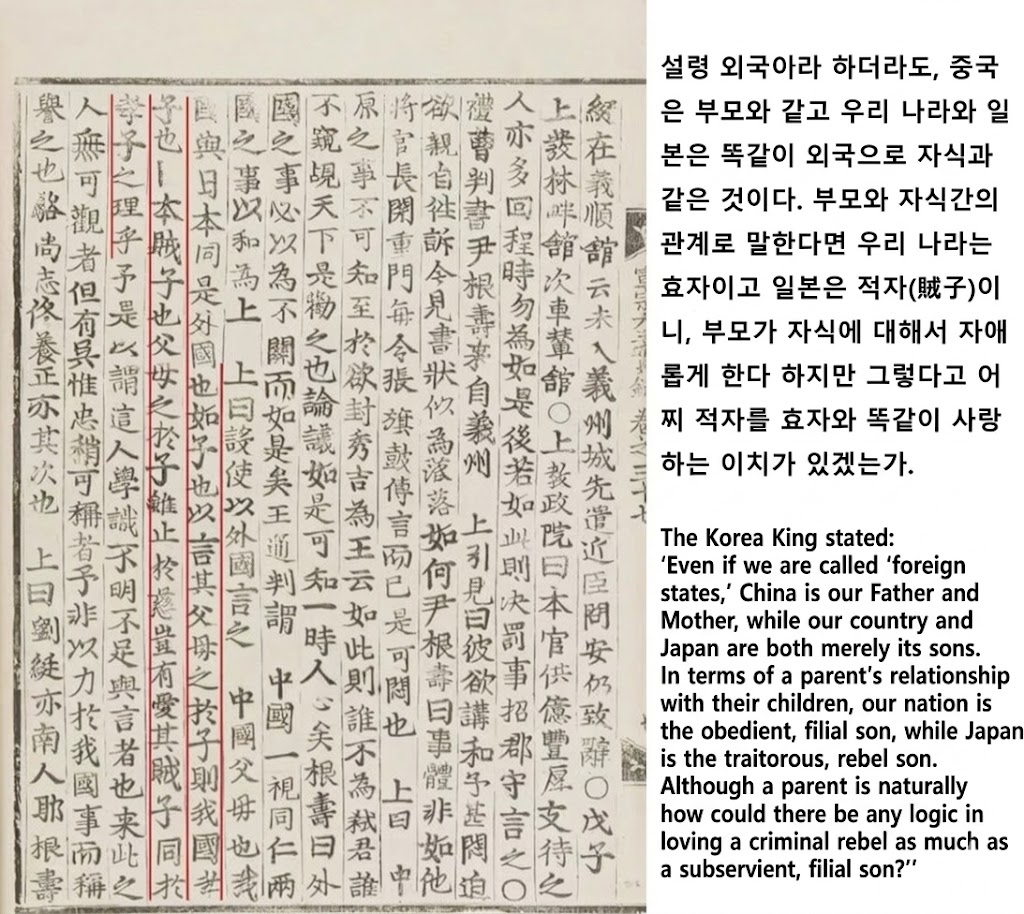 綏在義順舘云未入義州城先遣近臣問安仍致辭○戊子
上發林畔舘次車輦舘○上敎政院曰本官供億豐厚支待之
人亦多回程時勿為如是後若如此則决罰事招郡守言之○
禮曹判書尹根壽來自義州 上引見曰彼欲講和予甚悶迫
欲親自徃訴今見書狀似為落落如何尹根壽曰事體非如他
將官長閉重門每令張旗鼓傳言而已是可悶也 上曰 中
原之事不可知至於欲封秀吉為王云如此則誰不為弑君誰
不窺覘天下是勸之也論議如是可知一時人心矣根壽曰外
國之事必以為不關而如是矣王通判謂 中國一視同仁兩
國之事以和為上 上曰設使以外國言之 中國父母也我
國與日本同是外國也如子也以言其父母之於子則我國孝
子也日本賊子也父母之於子雖止於慈豈有愛其賊子同於
孝子之理乎予是以謂這人學識不明不足與言者也来此之
人無可觀者但有吳惟忠稍可稱者予非以力於我國事而稱
譽之也駱尚志佟養正亦其次也 上曰劉綎亦南人耶根壽
설령 외국아라 하더라도, 중국
은 부모와 같고 우리 나라와 일
본은 똑같이 외국으로 자식과
같은 것이다. 부모와 자식간의
관계로 말한다면 우리 나라는
효자이고 일본은 적자(賊子)이
니, 부모가 자식에 대해서 자애
롭게 한다 하지만 그렇다고 어
찌 적자를 효자와 똑같이 사랑
하는 이치가 있겠는가.
The Korea King stated:
‘Even if we are called ‘foreign
states,’ China is our Father and
Mother, while our country and
Japan are both merely its sons.
In terms of a parent’s relationship
with their children, our nation is
the obedient, filial son, while Japan
is the traitorous, rebel son.
Although a parent is naturally
how could there be any logic in
loving a criminal rebel as much as
a subservient, filial son?’’